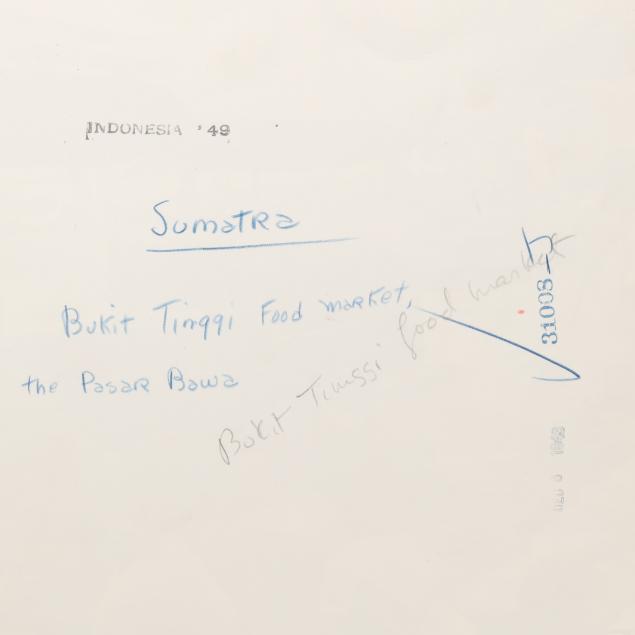 INDONESIA '49
Sumatra
Bukit Tinggi Food market,
the Pasar Bawa
Bukit Tinssi food market
31003-5